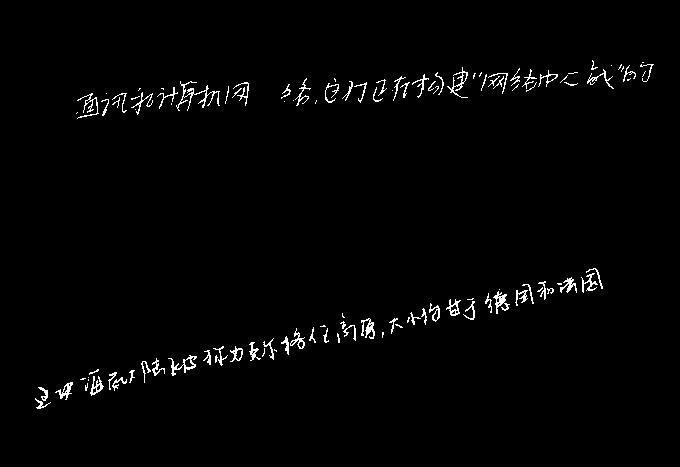 通讯和计算机网络，它们正在构建“网络中心战”的
这块海底大陆被称为克尔格伦高原，大小约等于德国和法国